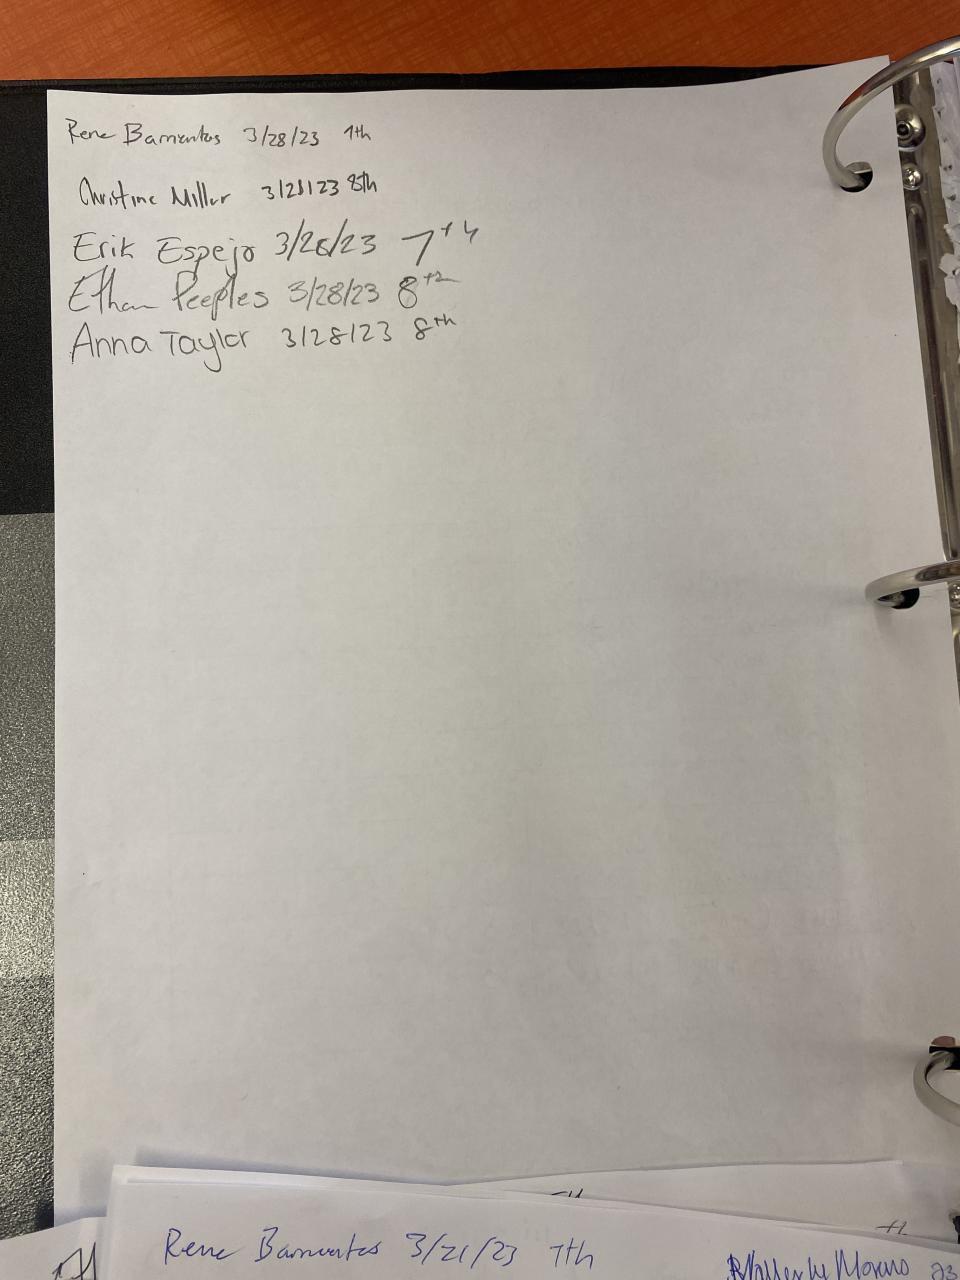 Rene Barrientos 3/28/23 7th
Christine Miller 3/28/23 8th
Erik Espejo 3/28/23 7th
Ethan Peeples 3/28/23 8th
Anna Taylor 3/28/23 8th
Rene Barrientos 3/21/23 7th